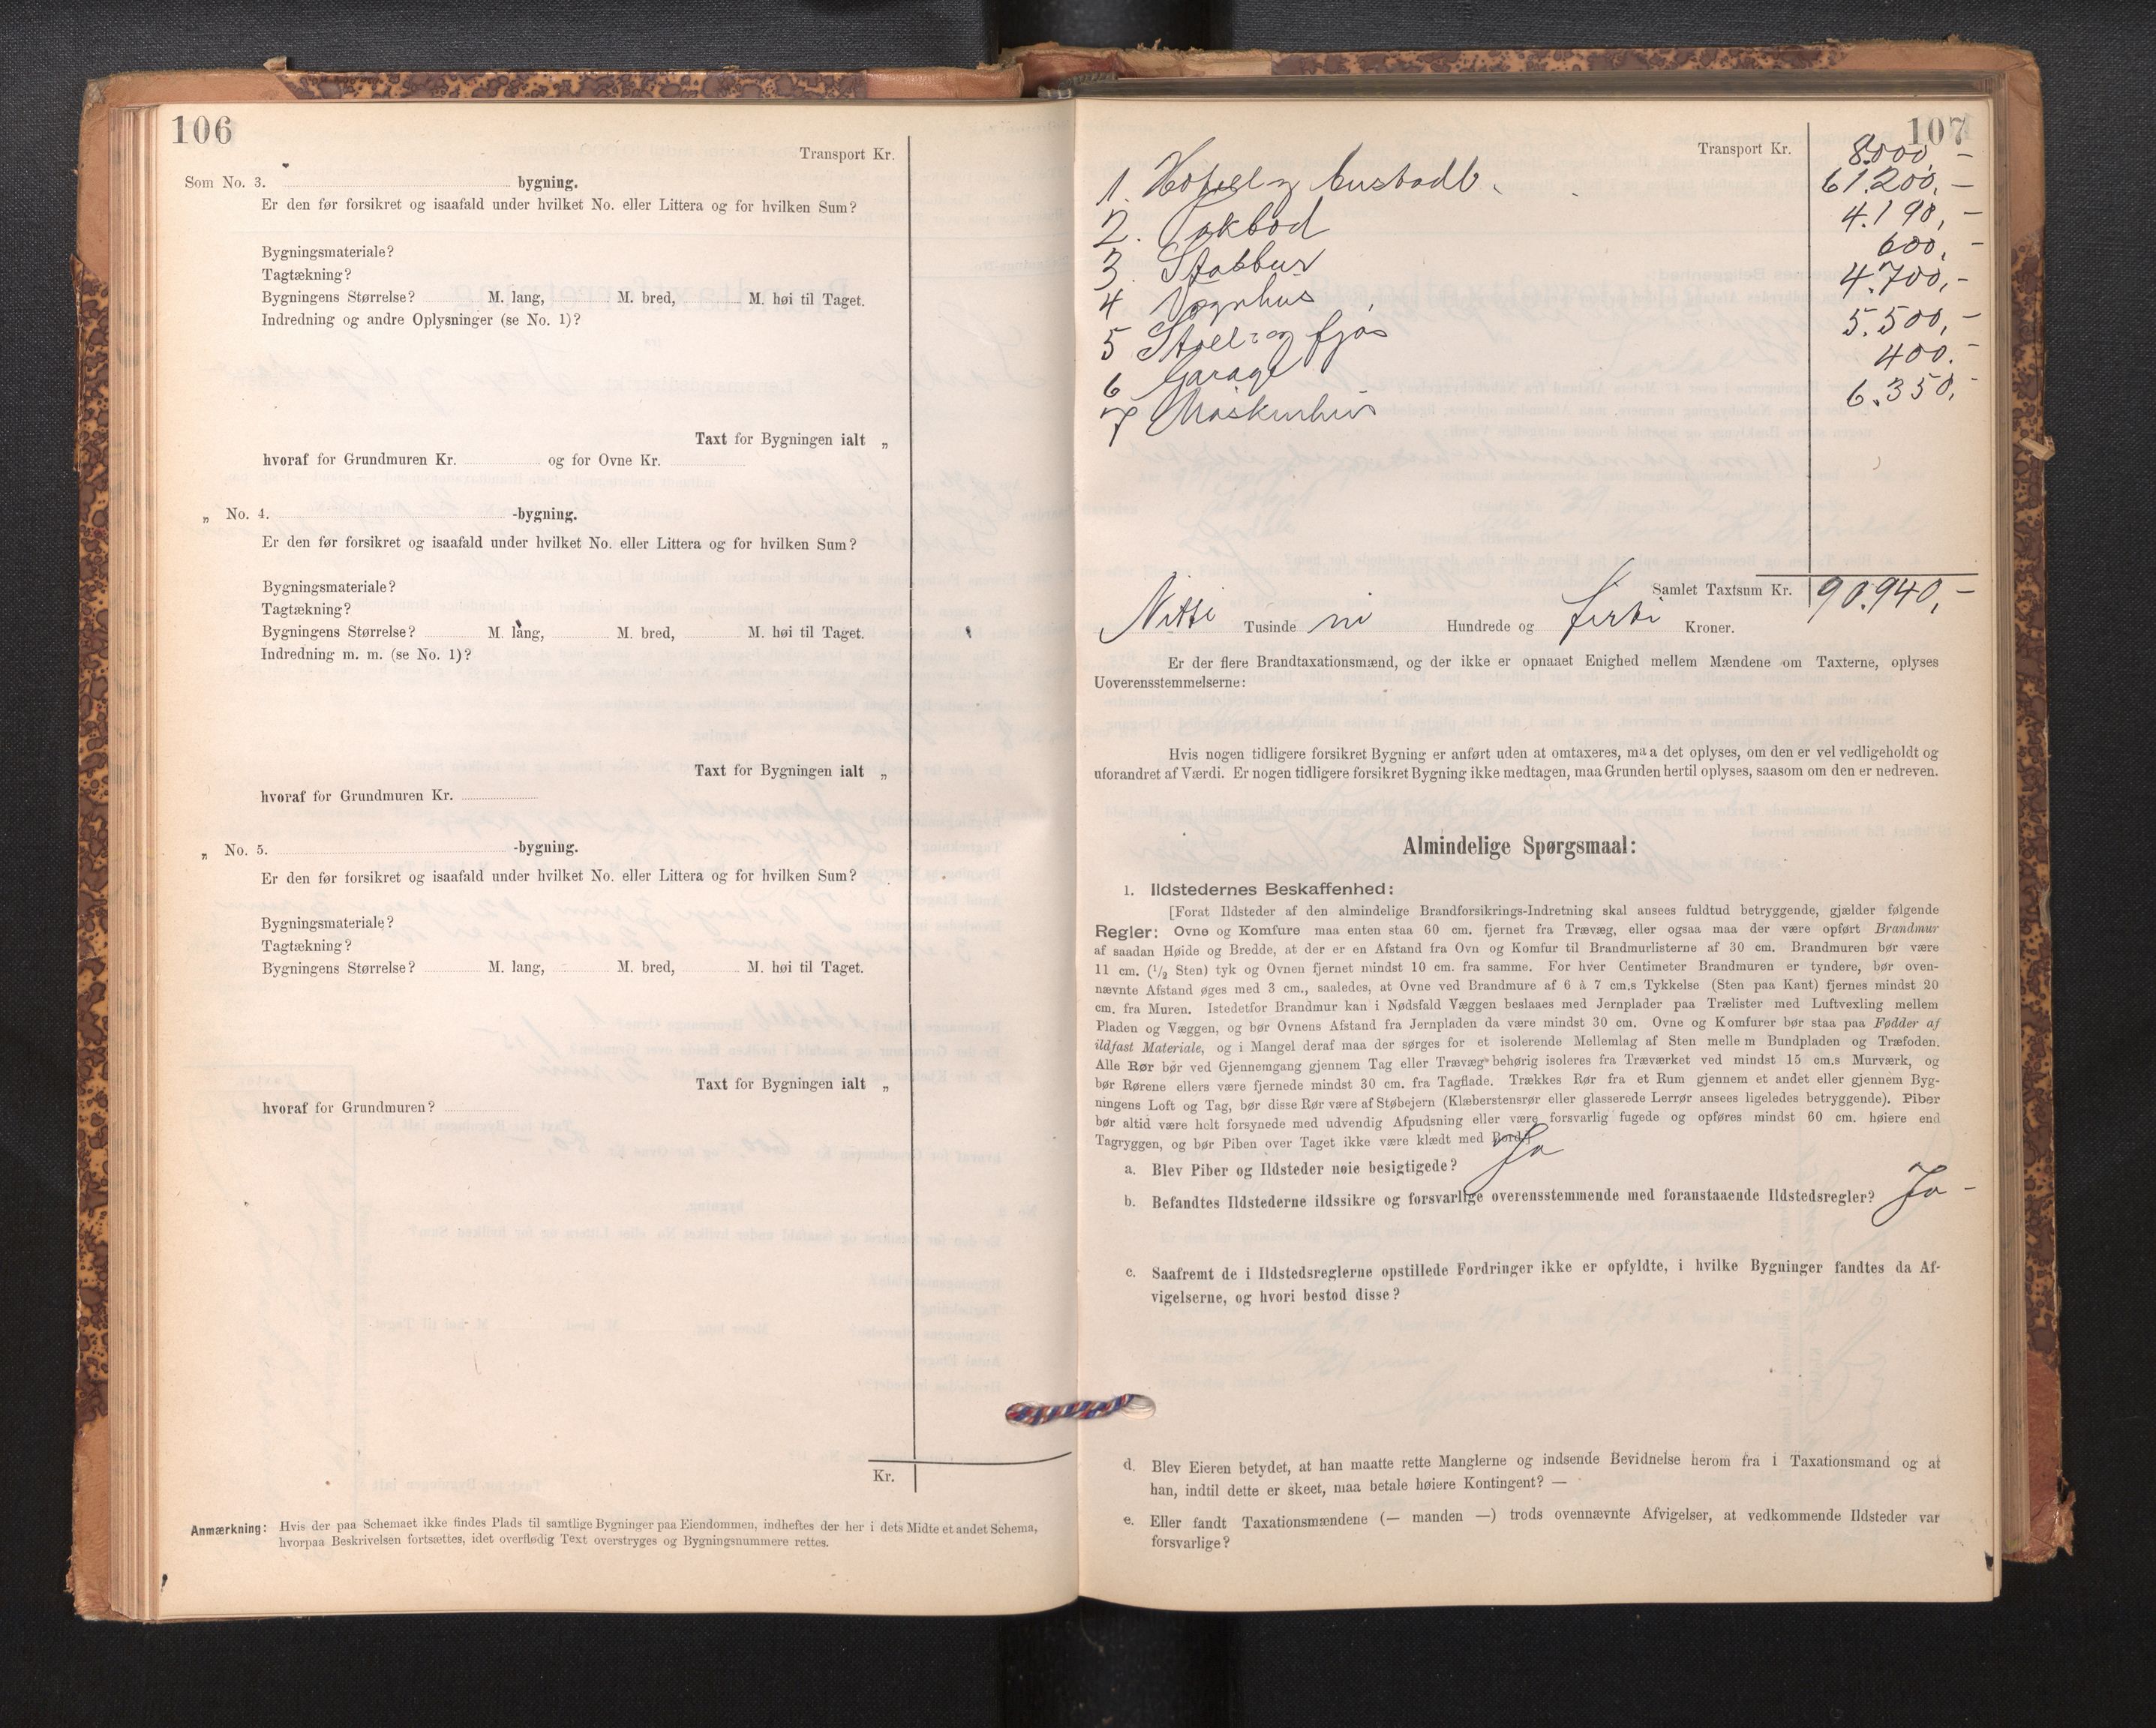 106
Transport Kr.
Som No. 3. bygning.
Er den før forsikret og isaafald under hvilket No. eller Littera og for hvilken Sum?
Bygningsmateriale?
Tagtækning?
Bygningens Størrelse? M. lang, M. bred, M. høi til Taget.
Indredning og andre Oplysninger (se No. 1)?
Taxt for Bygningen ialt „
hvoraf for Grundmuren Kr. og for Ovne Kr.
„ No. 4. -bygning.
Er den før forsikret og isaafald under hvilket No. eller Littera og for hvilken Sum?
Bygningsmateriale?
Tagtækning?
Bygningens Størrelse? M. lang, M. bred, M. høi til Taget.
Indredning m. m. (se No. 1)?
Taxt for Bygningen ialt „
hvoraf for Grundmuren Kr.
„ No. 5. -bygning.
Er den før forsikret og isaafald under hvilket No. eller Littera og for hvilken Sum?
Bygningsmateriale?
Tagtækning?
Bygningens Størrelse? M. lang, M. bred, M. høi til Taget.
Taxt for Bygningen ialt „
hvoraf for Grundmuren?
Kr.
Anmærkning: Hvis der paa Schemaet ikke findes Plads til samtlige Bygninger paa Eiendommen, indheftes der her i dets Midte et andet Schema,
hvorpaa Beskrivelsen fortsættes, idet overflødig Text overstryges og Bygningsnummere rettes.
107
Transport Kr. 8.000,-
1. Hotel og 61.200,-
2. 4.190,-
3. Stabbur 600,-
4 Vognhus 4.700,-
5 Stall- og fjøs 5.500,-
6 Garage 400.-
7 Maskinhus 6.350,-
Samlet Taxtsum Kr. 90.940,-
Nitti Tusinde ni Hundrede og firti Kroner.
Er der flere Brandtaxationsmænd, og der ikke er opnaaet Enighed mellem Mændene om Taxterne, oplyses
Uoverensstemmelserne:
Hvis nogen tidligere forsikret Bygning er anført uden at omtaxeres, maa det oplyses, om den er vel vedligeholdt og
uforandret af Værdi. Er nogen tidligere forsikret Bygning ikke medtagen, maa Grunden hertil oplyses, saasom om den er nedreven.
Almindelige Spørgsmaal:
1. Ildstedernes Beskaffenhed:
[Forat Ildsteder af den almindelige Brandforsikrings-Indretning skal ansees fuldtud betryggende, gjælder følgende
Regler: Ovne og Komfure maa enten staa 60 cm. fjernet fra Trævæg, eller ogsaa maa der være opført Brandmur
af saadan Høide og Bredde, at der er en Afstand fra Ovn og Komfur til Brandmurlisterne af 30 cm. Brandmuren bør være
11 cm. (1/2 Sten) tyk og Ovnen fjernet mindst 10 cm. fra samme. For hver Centimeter Brandmuren er tyndere, bør oven-
nævnte Afstand øges med 3 cm., saaledes, at Ovne ved Brandmure af 6 à 7 cm.s Tykkelse (Sten paa Kant) fjernes mindst 20
cm. fra Muren. Istedetfor Brandmur kan i Nødsfald Væggen beslaaes med Jernplader paa Trælister med Luftvexling mellem
Pladen og Væggen, og bør Ovnens Afstand fra Jernpladen da være mindst 30 cm. Ovne og Komfurer bør staa paa Fødder af
ildfast Materiale, og i Mangel deraf maa der sørges for et isolerende Mellemlag af Sten mellem Bundpladen og Træfoden.
Alle Rør bør ved Gjennemgang gjennem Tag eller Trævæg behørig isoleres fra Træværket ved mindst 15 cm.s Murværk, og
bør Rørene ellers være fjernede mindst 30 cm. fra Tagflade. Trækkes Rør fra et Rum gjennem et andet eller gjennem Byg-
ningens Loft og Tag, bør disse Rør være af Støbejern (Klæberstensrør eller glasserede Lerrør ansees ligeledes betryggende). Piber
bør altid være helt forsynede med udvendig Afpudsning eller være forsvarlig fugede og opføres mindst 60 cm. høiere end
Tagryggen, og bør Piben over Taget ikke være klædt med Bord.]
a. Blev Piber og Ildsteder nøie besigtigede? Ja
b. Befandtes Ildstederne ildssikre og forsvarlige overensstemmende med foranstaaende Ildstedsregler? Ja -
c. Saafremt de i Ildstedsreglerne opstillede Fordringer ikke er opfyldte, i hvilke Bygninger fandtes da Af-
vigelserne, og hvori bestod disse?
d. Blev Eieren betydet, at han maatte rette Manglerne og indsende Bevidnelse herom fra i Taxationsmand og at
han, indtil dette er skeet, maa betale høiere Kontingent? —
e. Eller fandt Taxationsmændene (— manden —) trods ovennævnte Afvigelser, at vedkommende Ildsteder var
forsvarlige?